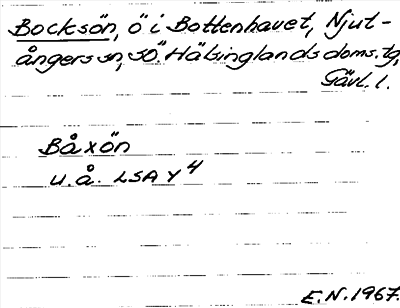 Bocksön, ö i Bottenhavet, Njut-
ångers sn, SÖ. Hälsinglands doms. tg,
Gävl. l.
Båxön
u.å. LSA Y 4
E.N. 1967.